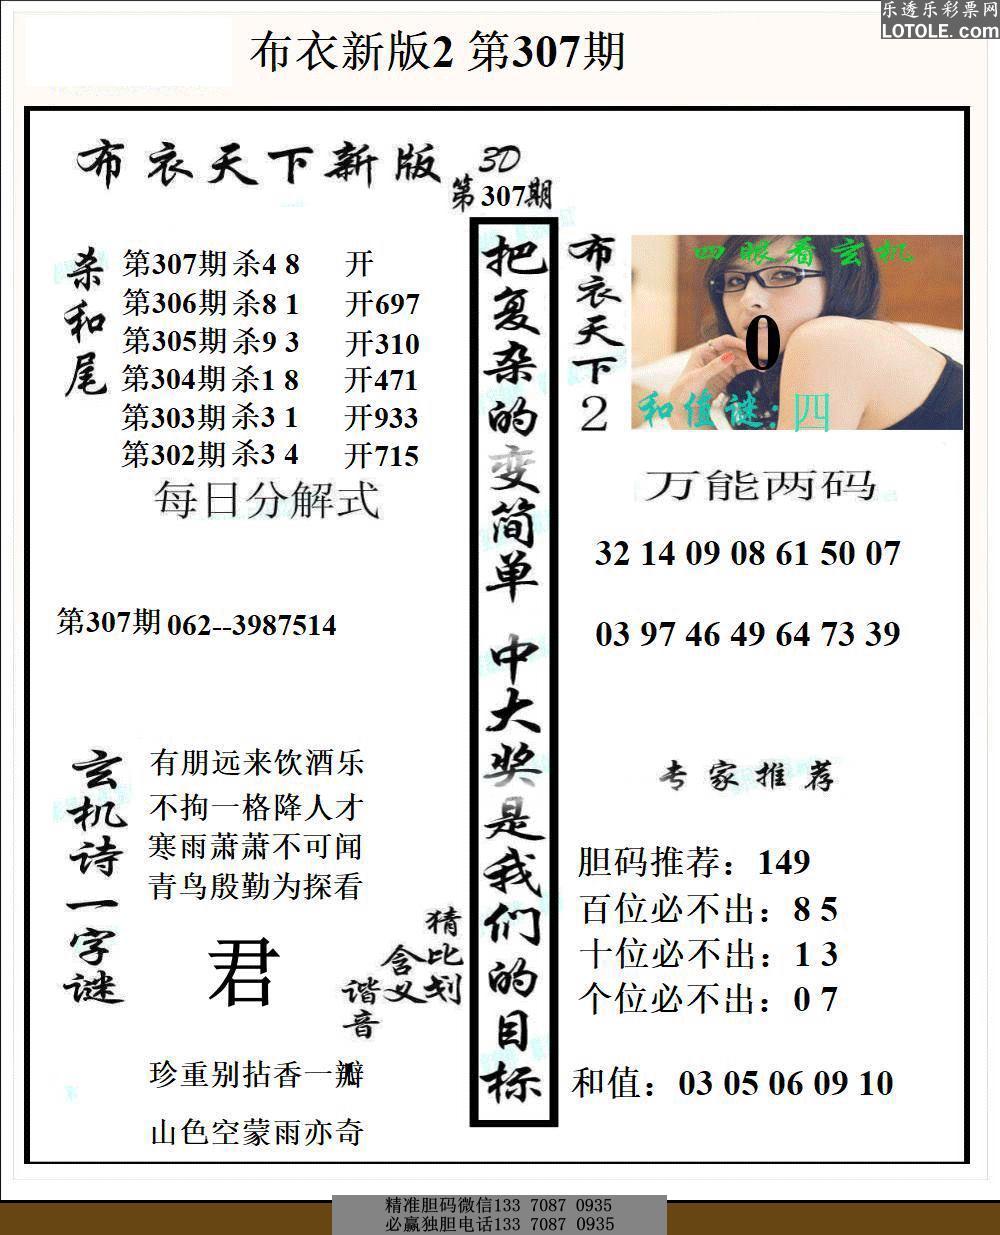 乐透乐彩票网
LOTOLE.com
布衣新版2 第307期
布衣天下新版 3D
第307期
杀和尾
第307期 杀4 8 开
第306期 杀8 1 开697
第305期 杀9 3 开310
第304期 杀1 8 开471
第303期 杀3 1 开933
第302期 杀3 4 开715
每日分解式
第307期 062--3987514
玄机诗一字谜
有朋远来饮酒乐
不拘一格降人才
寒雨萧萧不可闻
青鸟殷勤为探看
君
猜
含比
谐义划
音
珍重别拈香一瓣
山色空蒙雨亦奇
把复杂的变简单 中大奖是我们的目标
布衣天下2
四眼看玄机
0
和值谜:四
万能两码
32 14 09 08 61 50 07
03 97 46 49 64 73 39
专家推荐
胆码推荐：149
百位必不出：8 5
十位必不出：1 3
个位必不出：0 7
和值：03 05 06 09 10
精准胆码微信133 7087 0935
必赢独胆电话133 7087 0935